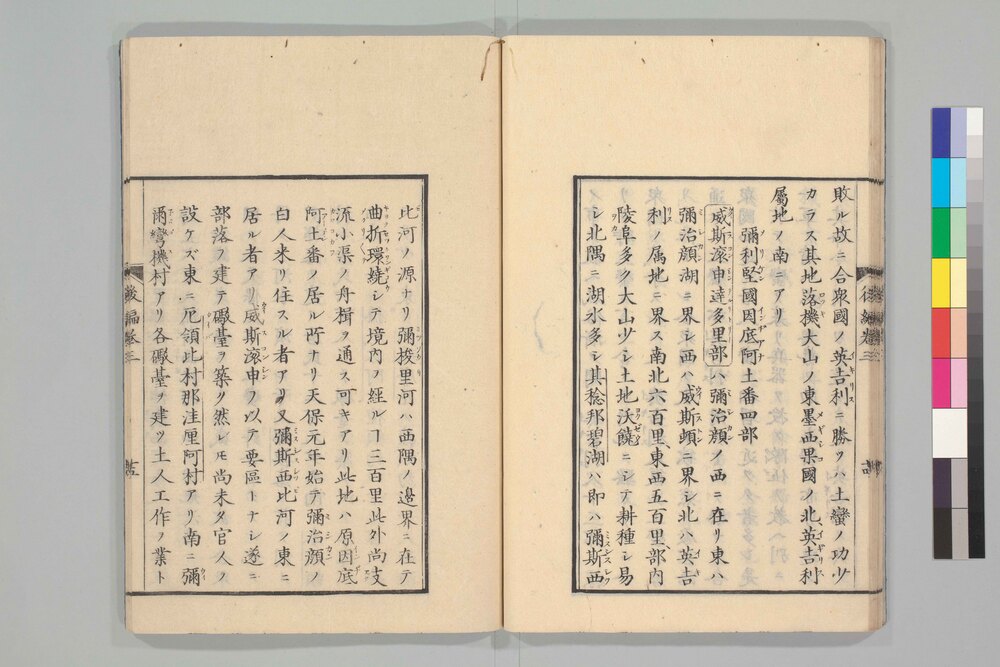 敗ル故ニ合衆國ノ英吉利ニ勝ツハ土蠻ノ功少
カラス其地落機大山ノ東墨西果國ノ北英吉利
屬地ノ南ニアリ
彌利堅國因底阿土番四部
威斯滾申達多里部ハ彌治顔ノ西ニ在リ東ハ
彌治顔湖ニ界シ西ハ威斯頓ニ界シ北ハ英吉
利ノ属地ニ界ス南北六百里東西五百里部内
陵阜多ク大山少シ土地沃饒ニシテ耕種シ易
シ北隅ニ湖水多シ其稔邦碧湖ハ即ハ彌斯西
此河ノ源ナリ彌梭里河ハ西隅ノ邊界ニ在テ
曲折環繞シテ境内ノ經ルヿ三百里此外尚支
流小渠ノ舟楫ヲ通ス可キアリ此地ハ原因底
阿土番ノ居ル所ナリ天保元年始テ彌治顔ノ
白人来リ住スル者アリ又彌斯西比河ノ東ニ
居ル者アリ威斯滾申ヲ以テ要區トナシ遂ニ
部落ヲ建テ礮臺ヲ築ク然レモ尚未タ官人ヲ
設ケズ東ニ厄領此村那洼厘阿村アリ南ニ彌
爾彎機村アリ各礮臺ヲ建ツ土人工作ノ業ト
後編巻三